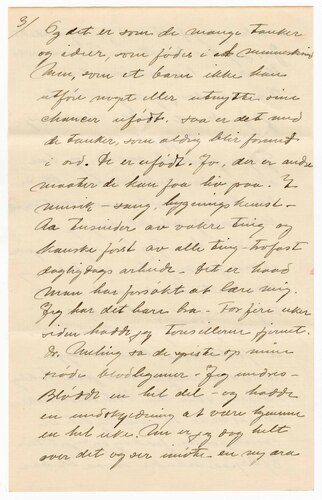 3/
Og det er som de mange tanker
og ideer, som fødes i et menneskesind
Men, som et barn ikke kan
utføre noget eller utnytte sine
chancer ufødt. saa er det med
de tanker, som aldrig blir formet
i ord. De er ufødt. Jo, der er andre
maater de kan faa liv paa. I
musik - sang, bygningskunst -
Aa tusinder av vakre ting og
kanske først av alle ting - trofast
dagligdags arbeide. Det er hvad
man har forsøkt at lære mig.
Jeg har det bare bra - For fire uker
siden hadde jeg tonsillerne fjernet.
Dr. sa de spiste op mine
røde blodlegemer - Jeg
Blødde en hel del - og hadde
en undskyldning at være hjemme
en hel uke. Nu er jeg dog helt
over det og ser imøte en ny